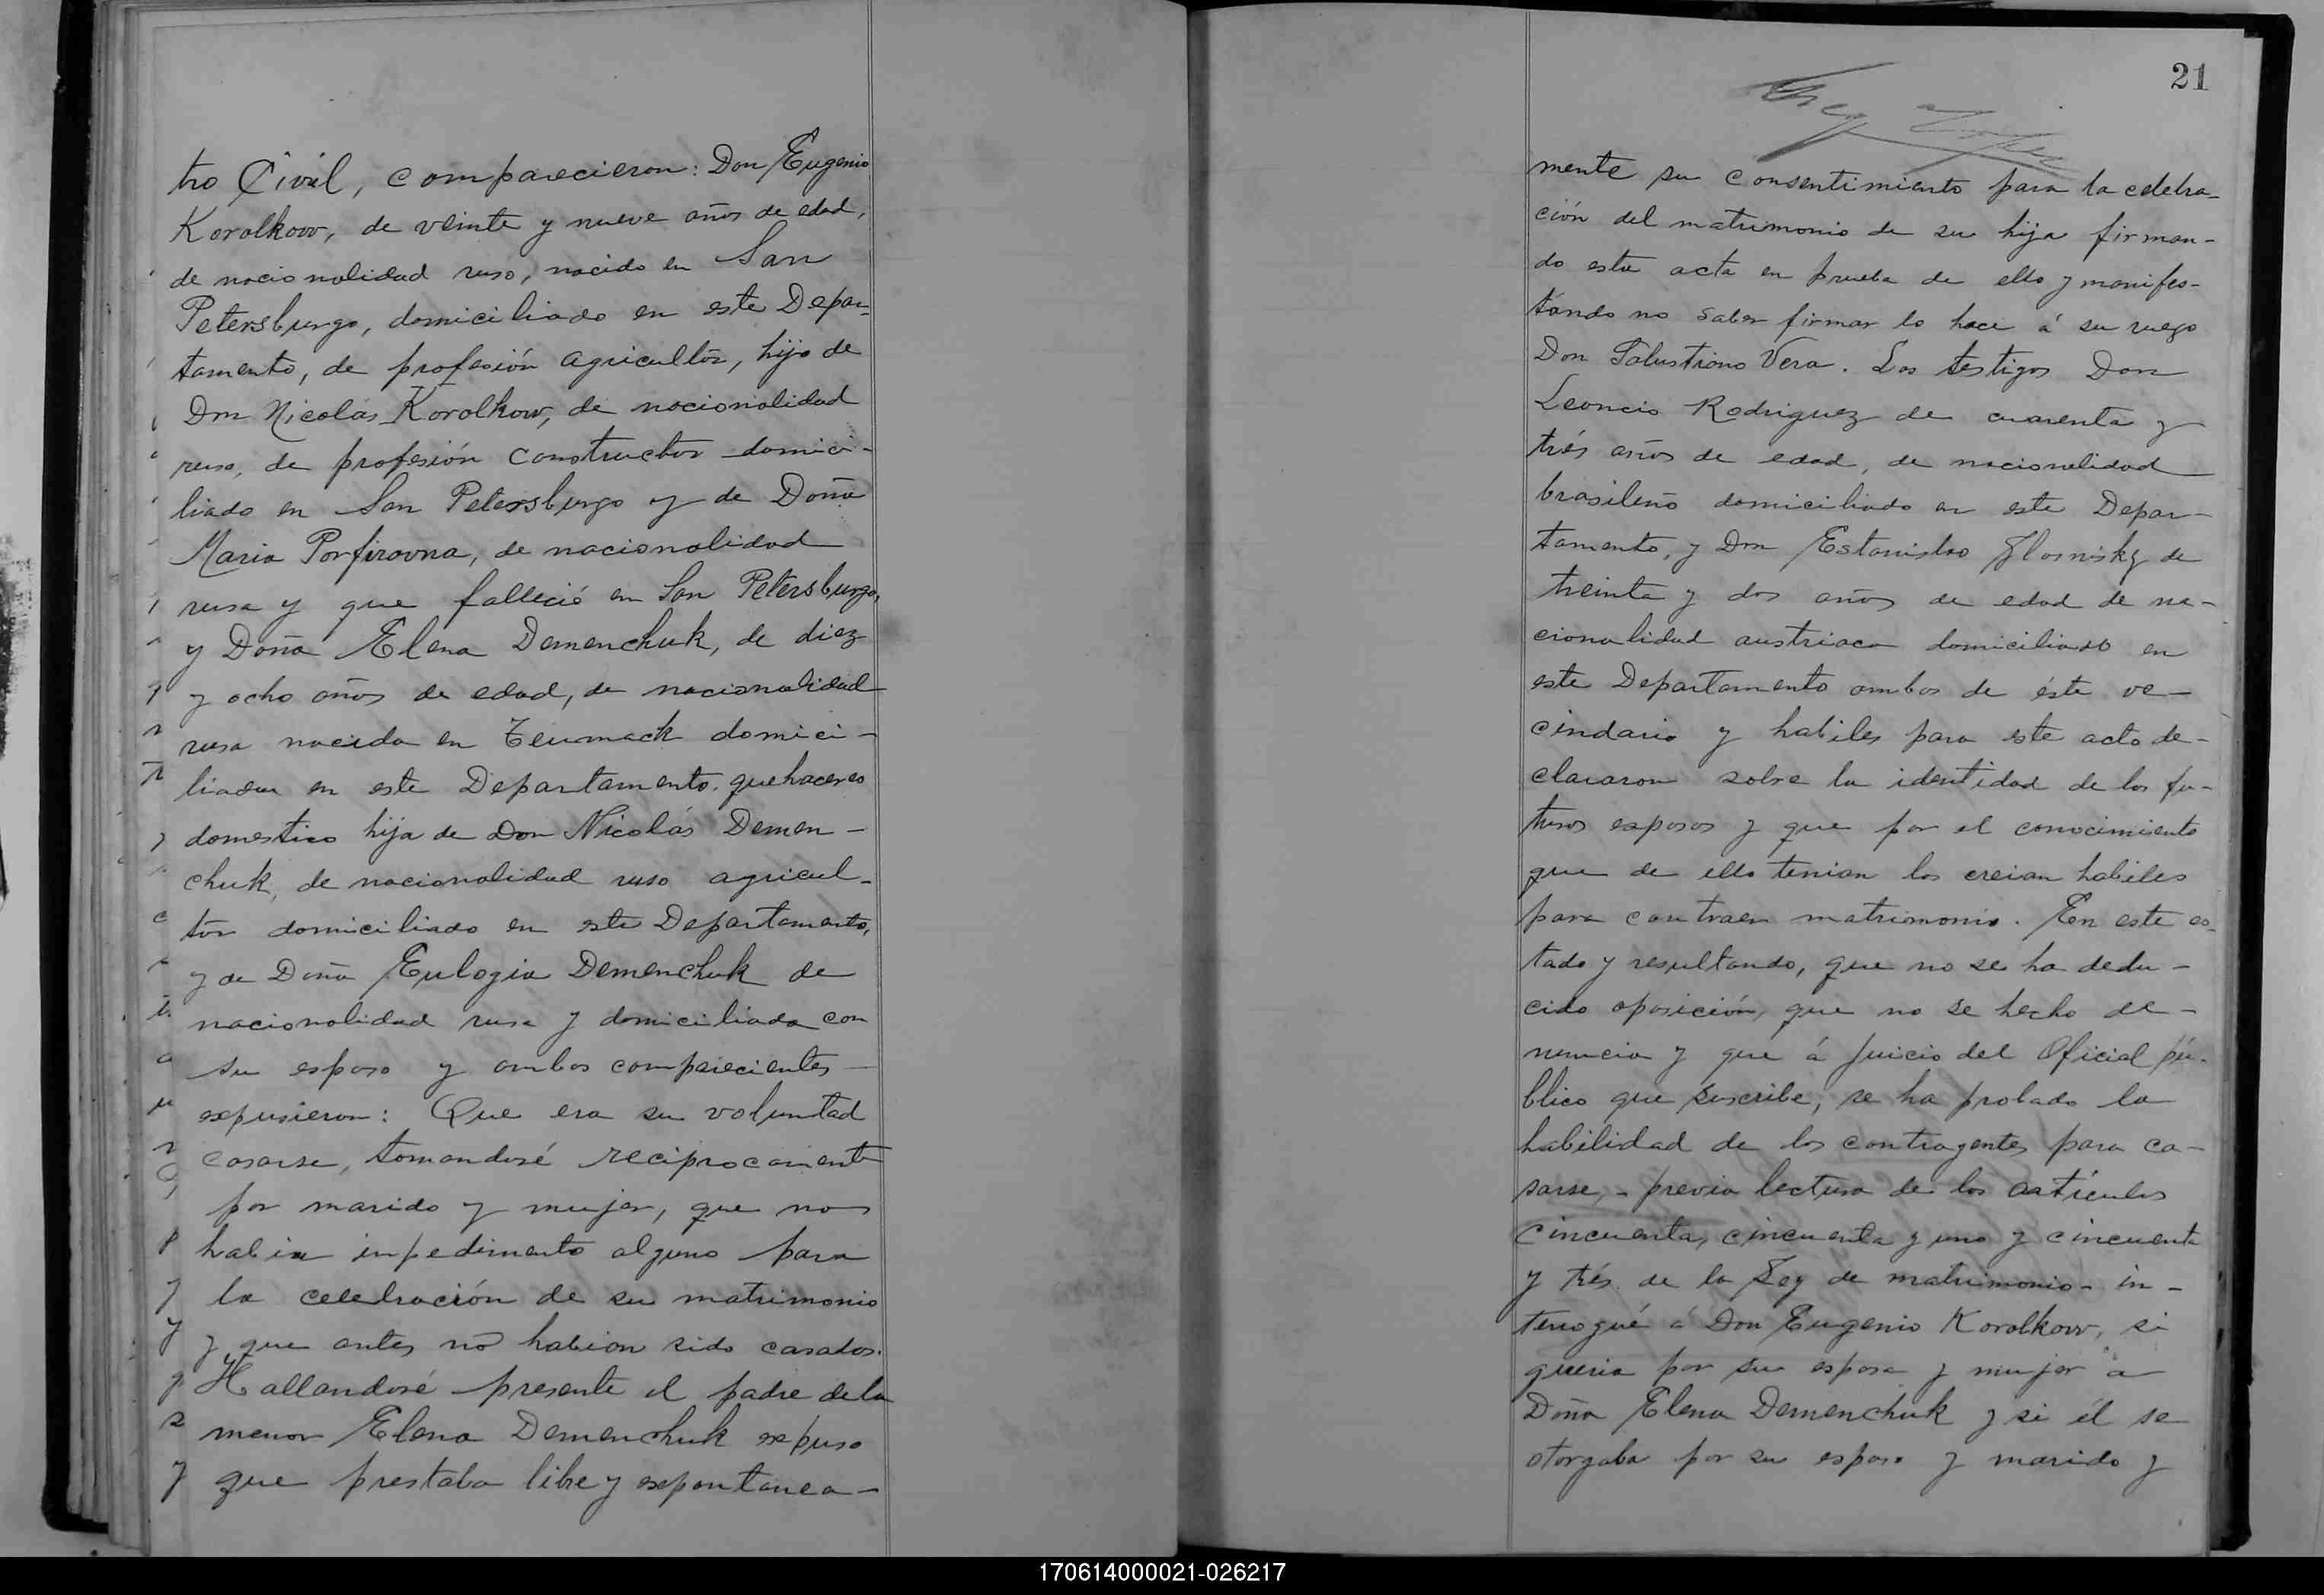 tro Civil, comparecieron: Don Eugenio
Korolkow, de veinte y nueve años de edad,
de nacionalidad ruso, nacido en San
Petersburgo, domiciliado en este Depar-
tamento, de profesión agricultor, hijo de
Don Nicolás Korolkow, de nacionalidad
ruso, de profesión constructor domici-
liado en San Petersburgo y de Doña
Maria Porfirovna, de nacionalidad
rusa y que falleció en San Petersburgo,
y Doña Elena Demenchuk, de diez
y ocho años de edad, de nacionalidad
rusa nacida en domici-
liada en este Departamento, quehaceres
domestico hija de Don Nicolás Demen-
chuk, de nacionalidad ruso agricul-
tor domiciliado en este Departamento,
y de Doña Eulogia Demenchuk de
nacionalidad rusa y domiciliada con
su esposo y ambos comparecientes
expusieron: Que era su voluntad
casarse, tomandosé reciprocamente
por marido y mujer, que no
habia impedimento alguno para
la celebración de su matrimonio
y que antes no habian sido casados.
Hallandosé presente el padre de la
menor Elena Demenchuk expuso
que prestaba libre y expontanea-
21
mente su consentimiento para la celebra-
ción del matrimonio de su hija firman-
do esta acta en prueba de ello y manifes-
tándo no saber firmar lo hace á su ruego
Don Salustiano Vera. Los testigos Don
Leoncio Rodriguez de cuarenta y
trés años de edad, de nacionalidad
brasileño domiciliado en este Depar-
tamento, y Don Estanislao de
treinta y dos años de edad de na-
cionalidad austriaca domiciliado en
este Departamento ambos de éste ve-
cindario y habiles para este acto de-
clararon sobre la identidad de los fu-
turos esposos y que por el conocimiento
que de ello tenian los creian habiles
para contraer matrimonio. En este es-
tado y resultando, que no se ha dedu-
cido oposición, que no se hecho de-
nuncia y que á juicio del Oficial pú-
blico que suscribe, se ha probado la
habilidad de los contrayentes para ca-
sarse, - previa lectura de los artículos
cincuenta, cincuenta y uno y cincuenta
y trés de la Ley de matrimonio - in-
terrogué á Don Eugenio Korolkow, si
queria por su esposa y mujer a
Doña Elena Demenchuk y si él se
otorgaba por su esposo y marido y
170614000021-026217